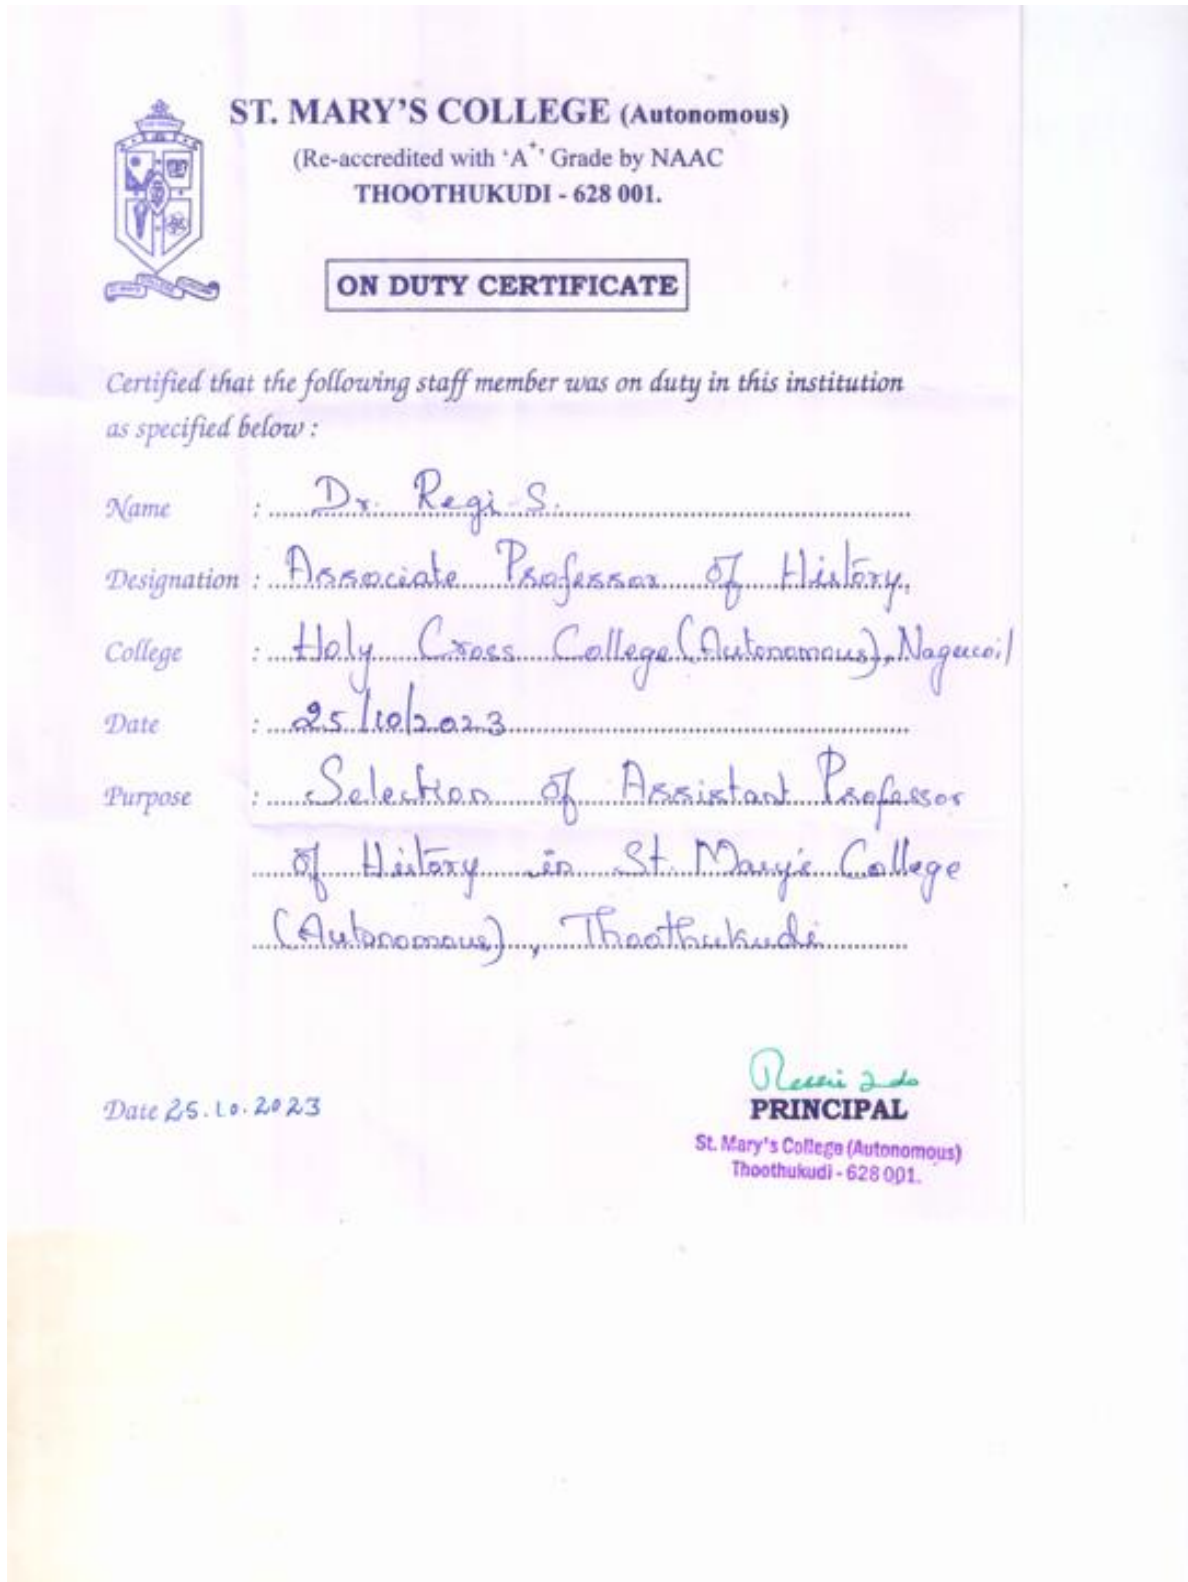 ST. MARY'S COLLEGE (Autonomous)
(Re-accredited with 'A+' Grade by NAAC
THOOTHUKUDI - 628 001.
ON DUTY CERTIFICATE
Certified that the following staff member was on duty in this institution
as specified below :
Name : Dr. Regi S.
Designation : Associate Professor of History,
College : Holy Cross College (Autonomous), Nagercoil
Date : 25/10/2023
Purpose : Selection of Assistant Professor
of History in St. Mary's College
(Autonomous), Thoothukudi
Date 25.10.2023
PRINCIPAL
St. Mary's College (Autonomous)
Thoothukudi - 628 001.